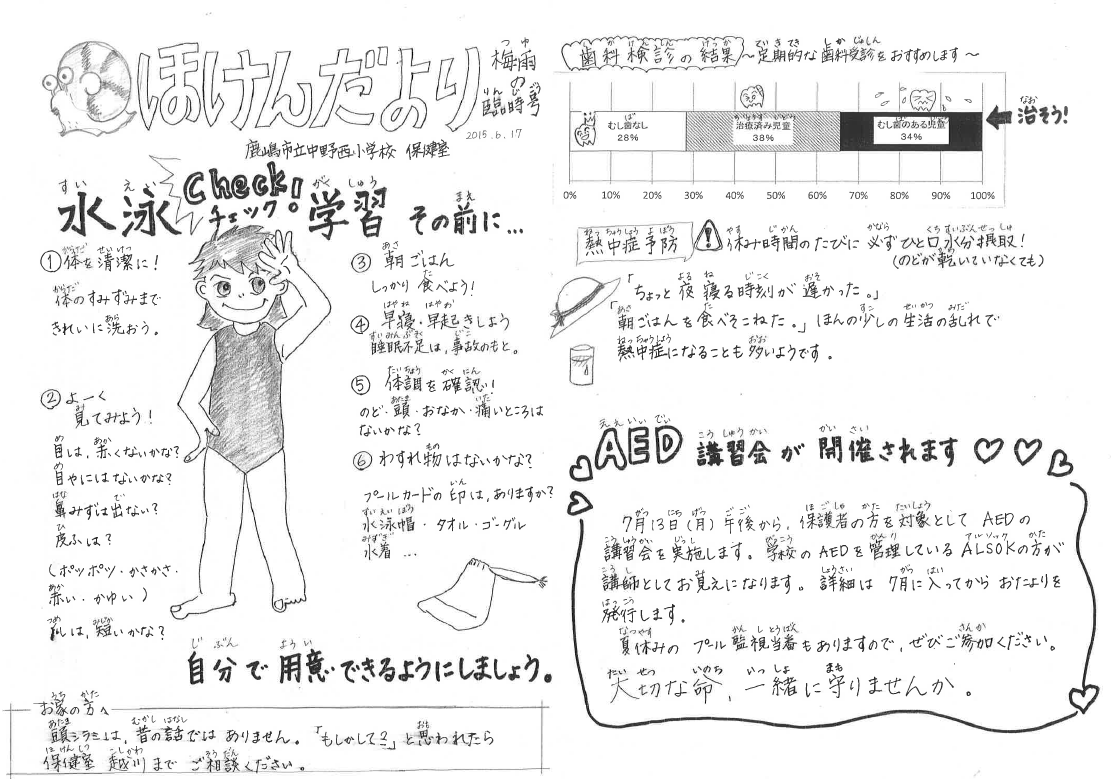 ほけんだより
梅雨の臨時号
2015.6.17
鹿嶋市立中野西小学校 保健室
水泳学習 その前に…
Check!
チェック
①体を清潔に!
体のすみずみまで
きれいに洗おう。
②よーく
見てみよう!
目は、赤くないかな?
目やにはないかな?
鼻みずは出ない?
皮ふは?
(ポツポツ・かさかさ・
赤い・かゆい)
爪は、短いかな?
③朝ごはん
しっかり食べよう!
④早寝・早起きしよう
睡眠不足は、事故のもと。
⑤体調を確認!
のど・頭・おなか・痛いところは
ないかな?
⑥わすれ物はないかな?
プールカードの印は、ありますか?
水泳帽・タオル・ゴーグル
水着…
自分で用意できるようにしましょう。
お家の方へ
頭ジラミは、昔の話ではありません。「もしかして?」と思われたら
保健室 越川までご相談ください。
歯科検診の結果 ～定期的な歯科受診をおすすめします～
むし歯なし
28%
治療済み児童
38%
むし歯のある児童
34%
治そう!
0% 10% 20% 30% 40% 50% 60% 70% 80% 90% 100%
熱中症予防 休み時間のたびに必ずひと口水分摂取!
(のどが乾いていなくても)
「ちょっと夜寝る時刻が遅かった。」
「朝ごはんを食べそこねた。」ほんの少しの生活の乱れで
熱中症になることも多いようです。
AED講習会が開催されます
7月13日(月)午後から、保護者の方を対象としてAEDの
講習会を実施します。学校のAEDを管理しているALSOKの方が
講師としてお見えになります。詳細は7月に入ってからおたよりを
発行します。
夏休みのプール監視当番もありますので、ぜひご参加ください。
大切な命、一緒に守りませんか。